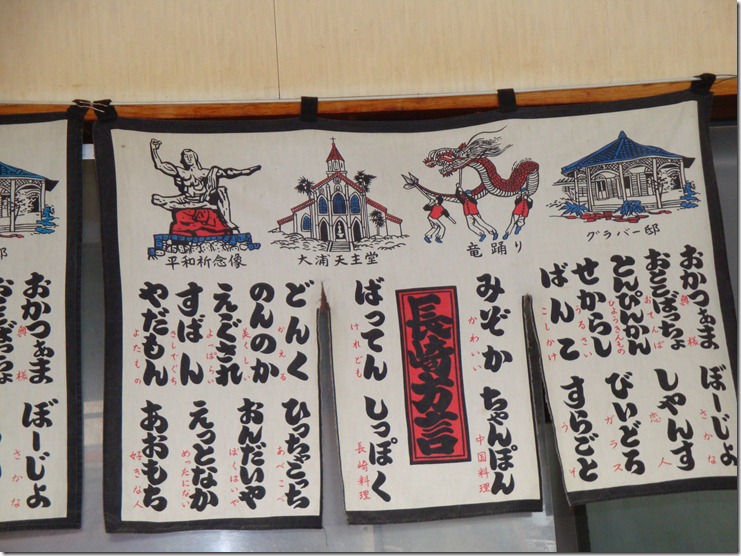 邸
平和祈念像
大浦天主堂
竜踊り
グラバー邸
おかつぁま
奥様
ぼーじょ
さかな
おてんば
しゃんす
恋人
とんぴんかん
ひょうきんもの
びいどろ
ガラス
せからし
うるさい
すらごと
うそ
ばんこ
こしかけ
みぞか
かわいい
ちゃんぽん
中国料理
長崎方言
ばってん
けれども
しっぽく
長崎料理
どんく
かえる
ひっちゃこっち
あべこべ
のんのか
美くしい
おんだいや
ぼくはいや
えぐされ
よっぱらい
えっとなか
めったにない
すばん
さしでぐち
あおもち
好きな人
やだもん
よたもの
おかつぁま
奥様
ぼーじょ
さかな